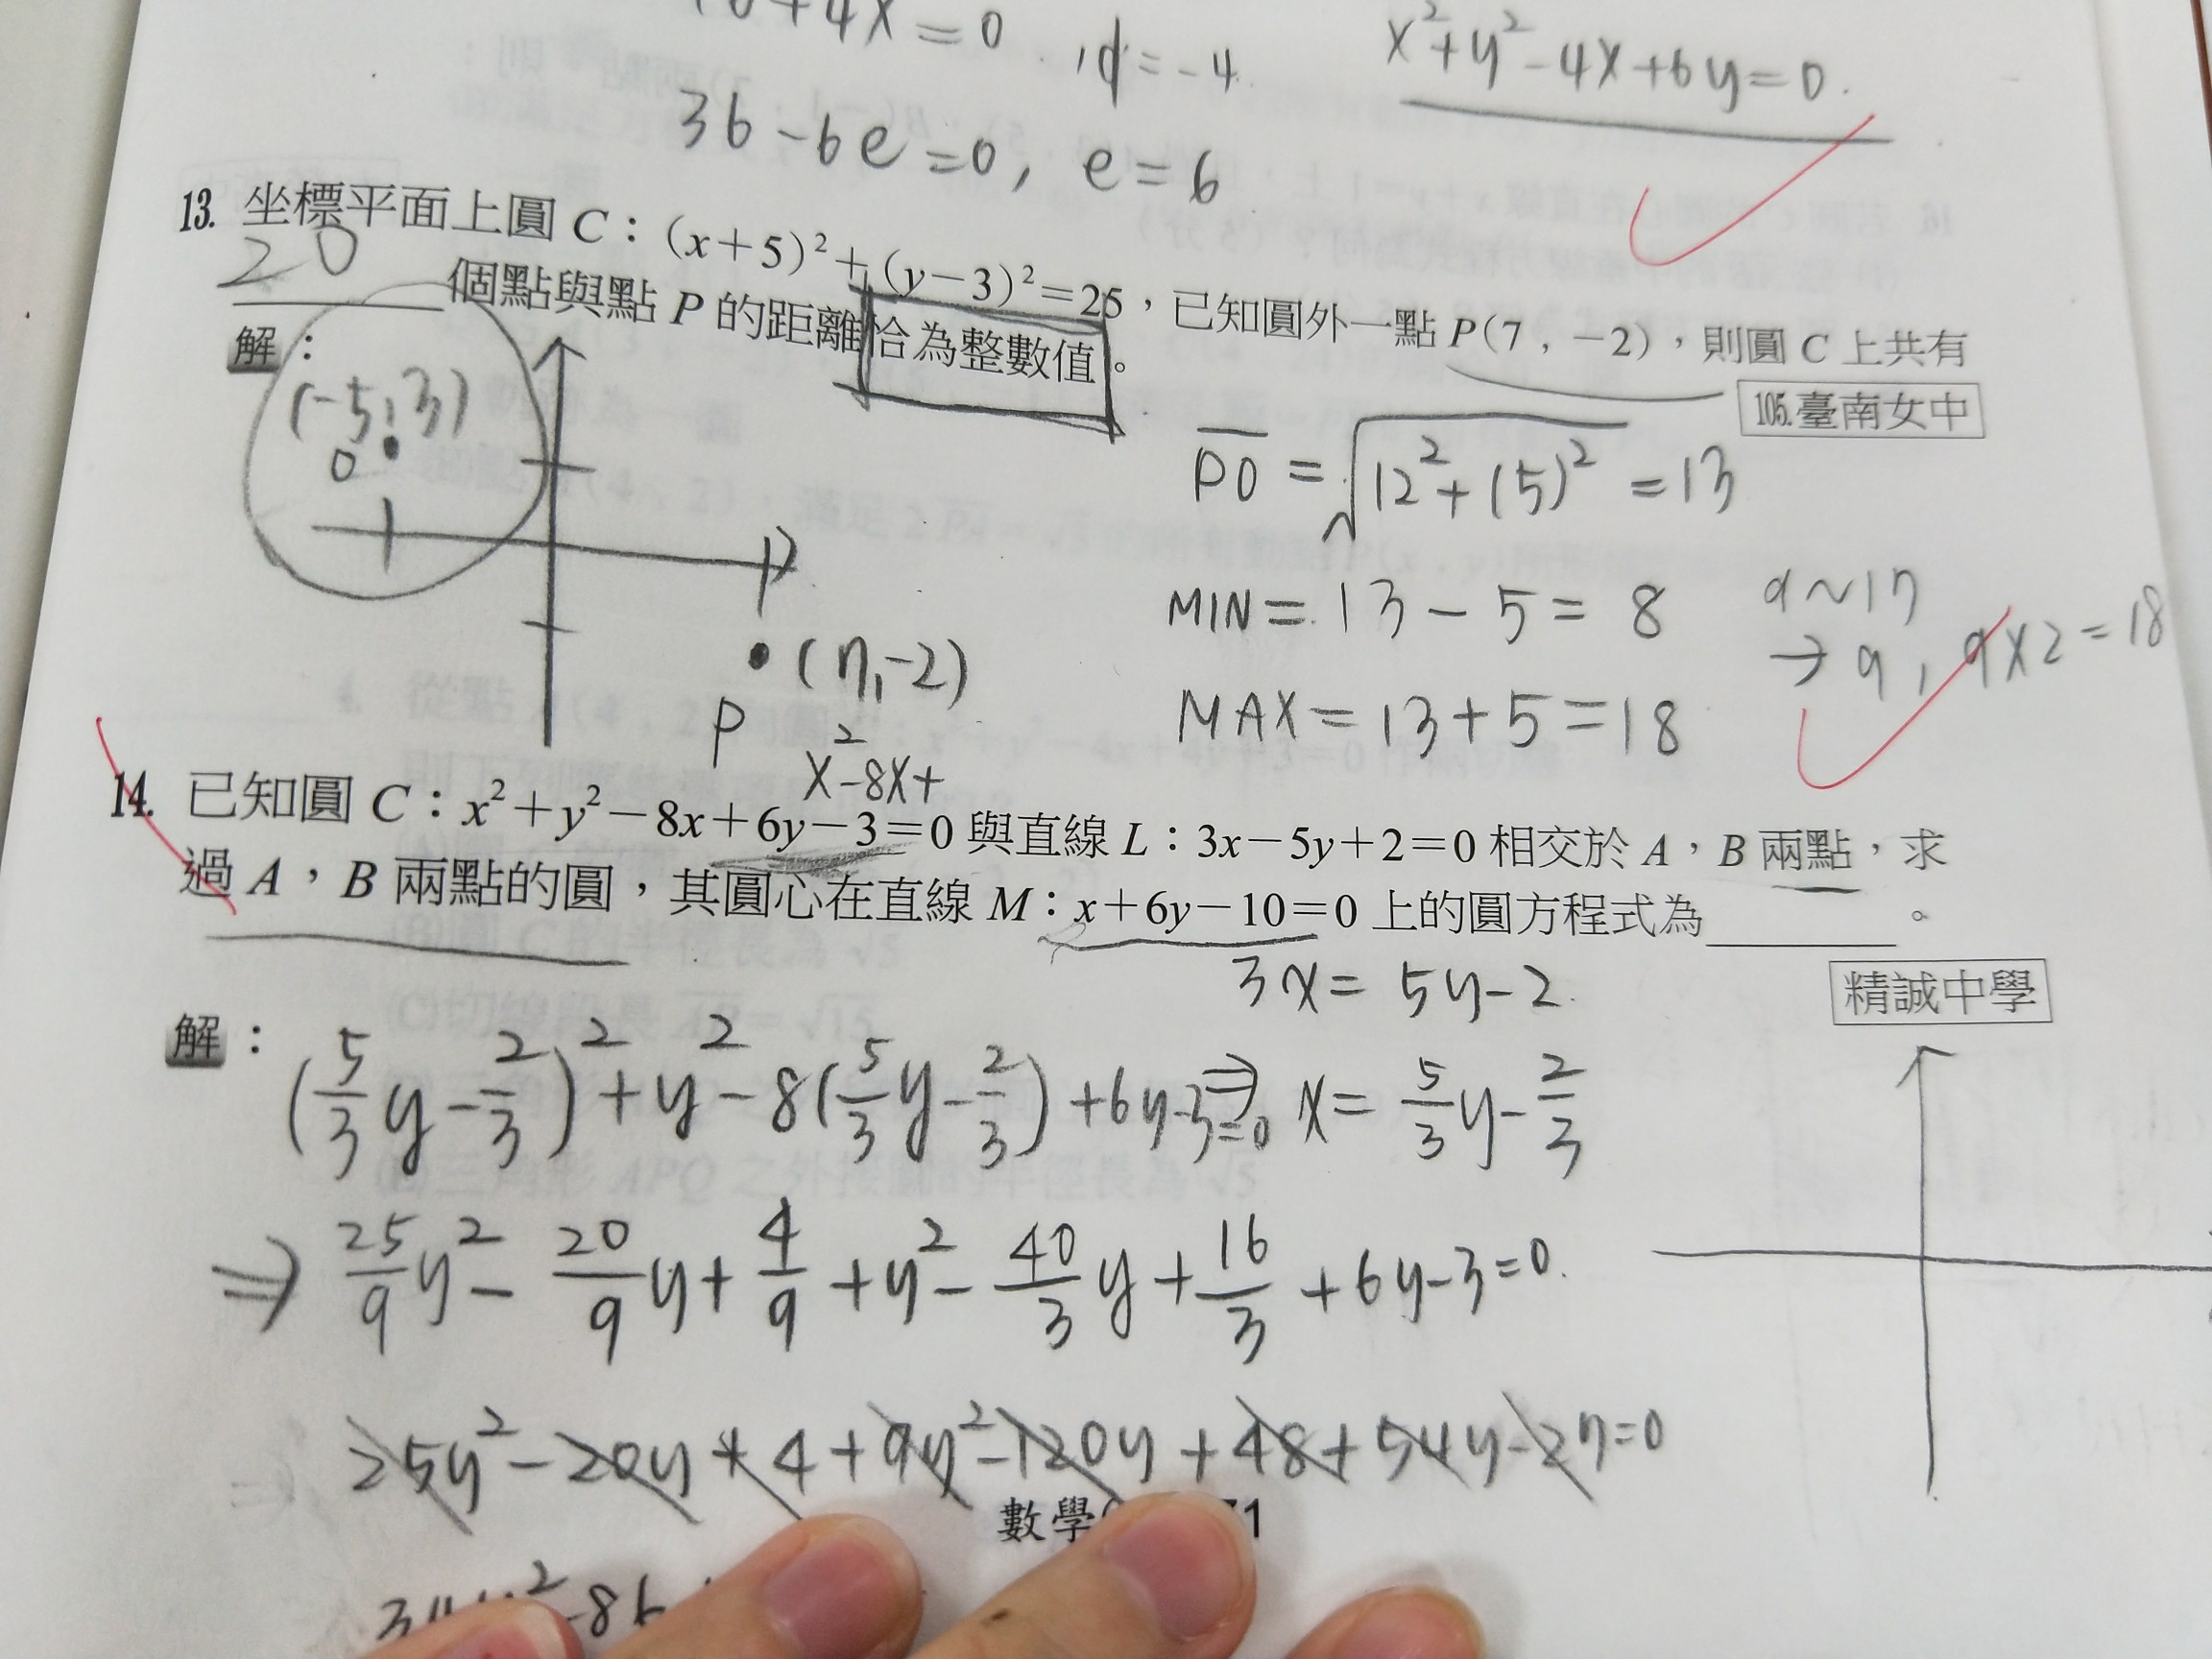 +4x=0 , d=-4
x²+y²-4x+6y=0.
36-6e=0, e=6
13. 坐標平面上圓 C：(x+5)²+(y-3)²=25，已知圓外一點 P(7，-2)，則圓 C 上共有
20 個點與點 P 的距離恰為整數值。
105.臺南女中
解：
(-5,3)
O
PO = √12²+(5)² =13
MIN= 13-5= 8
9~17
→9, 9×2=18
MAX=13+5=18
(7,-2)
P
x²-8x+
14. 已知圓 C：x²+y²-8x+6y-3=0 與直線 L：3x-5y+2=0 相交於 A，B 兩點，求
過 A，B 兩點的圓，其圓心在直線 M：x+6y-10=0 上的圓方程式為 。
精誠中學
3x= 5y-2
解：(5/3y-2/3)²+y²-8(5/3y-2/3)+6y-3=0 ⇒ x= 5/3y-2/3
⇒ 25/9y²-20/9y+4/9+y²-40/3y+16/3+6y-3=0.
25y²-20y+4+9y²-120y+48+54y-27=0
數學
1
34y²-86